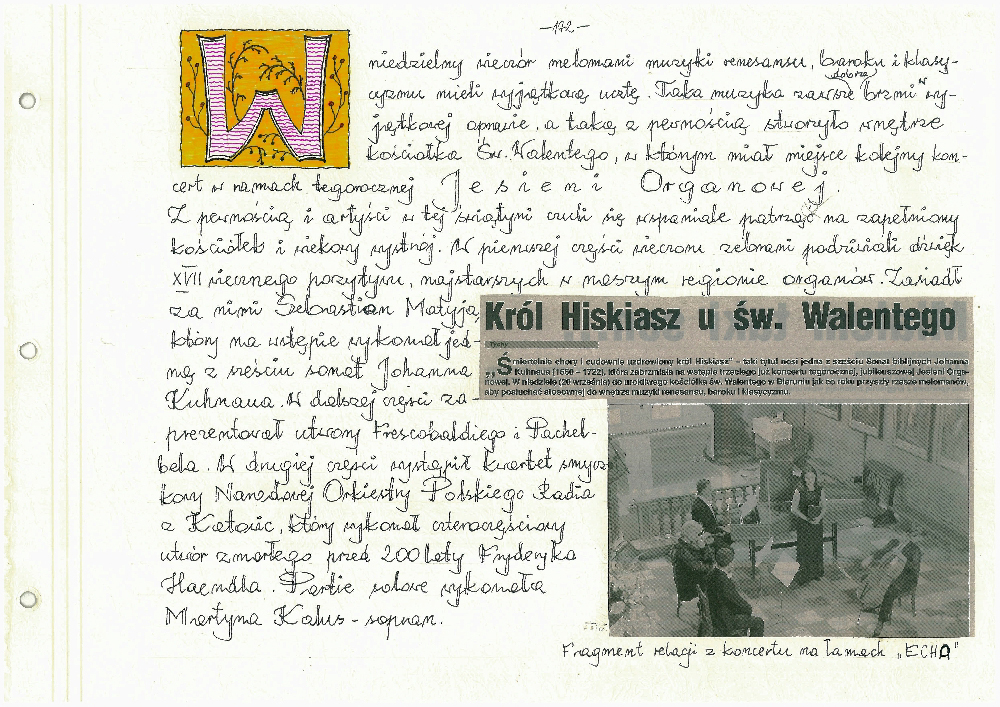 —172—
W niedzielny wieczór melomani muzyki renesansu, baroku i klasy-
dobrze
cyzmu mieli wyjątkową ucztę. Taka muzyka zawsze brzmi w wy-
jątkowej oprawie, a taką z pewnością stworzyło wnętrze
kościółka Św. Walentego, w którym miał miejsce kolejny kon-
cert w ramach tegorocznej Jesieni Organowej.
Z pewnością i artyści w tej świątyni czuli się wspaniale patrząc na zapełniony
kościółek i wiekowy wystrój. W pierwszej części wieczoru zebrani podziwiali dźwięk
XVII wiecznego pozytywu, najstarszych w naszym regionie organów. Zasiadł
za nimi Sebastian Matyja,
który na wstępie wykonał jed-
ną z sześciu sonat Johanna
Kuhnaua. W dalszej części za-
prezentował utwory Frescobaldiego i Pachel-
bela. W drugiej części wystąpił kwartet smycz
kowy Narodowej Orkiestry Polskiego Radia
z Katowic, który wykonał czteroczęściowy
utwór zmarłego przed 200 laty Fryderyka
Haendla. Partie solowe wykonała
Martyna Kalus - sopran.
Król Hiskiasz u św. Walentego
„Śmiertelnie chory i cudownie uzdrowiony król Hiskiasz” – taki tytuł nosi jedna z sześciu Sonat biblijnych Johanna
Kuhnaua (1660 – 1722), która zabrzmiała na wstępie trzeciego już koncertu tegorocznej, jubileuszowej Jesieni Orga-
nowej. W niedzielę (20 września) do urodziwego kościółka św. Walentego w Bieruniu jak co roku przyszły rzesze melomanów,
aby posłuchać stosownej do wnętrza muzyki renesansu, baroku i klasycyzmu.
Fragment relacji z koncertu na łamach „ECHA”